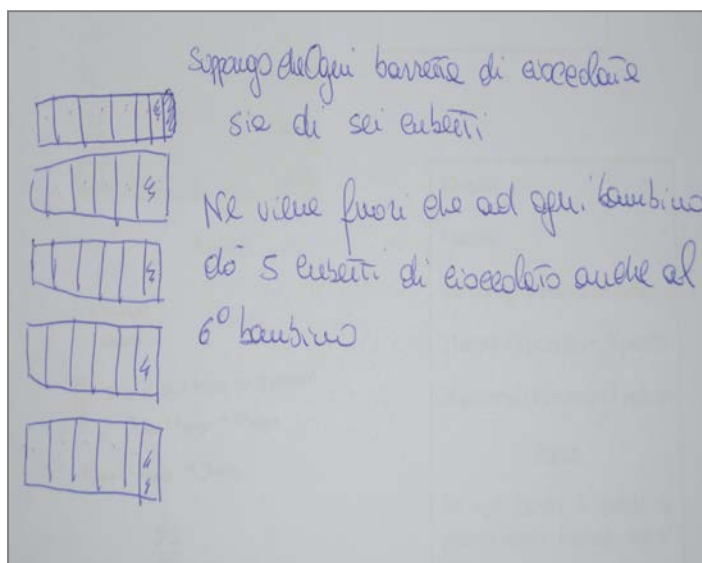 Suppongo che Ogni barretta di cioccolate
sia di sei cubetti
Ne viene fuori che ad ogni bambino
dò 5 cubetti di cioccolato anche al
6° bambino